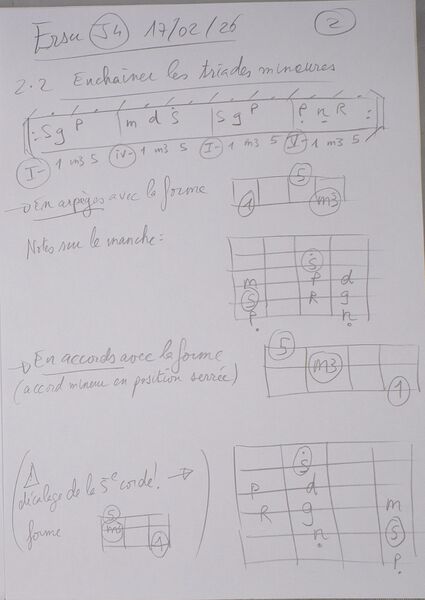 Ersu J4 17/02/26 2
2.2 Enchaîner les triades mineures
: S g P | m d Ṡ | S g P | P̣ ṇ R :
I- 1 m3 5 IV- 1 m3 5 I- 1 m3 5 V- 1 m3 5
→ En arpèges avec la forme
5
1 m3
Notes sur le manche :
Ṡ
m P d
S R g
P̣ ṇ
→ En accords avec la forme
(accord mineur en position serrée)
5
m3
1
(⚠ décalage de la 5e corde! →)
forme
5
m3
1
Ṡ
P d
R g m
ṇ S
P̣